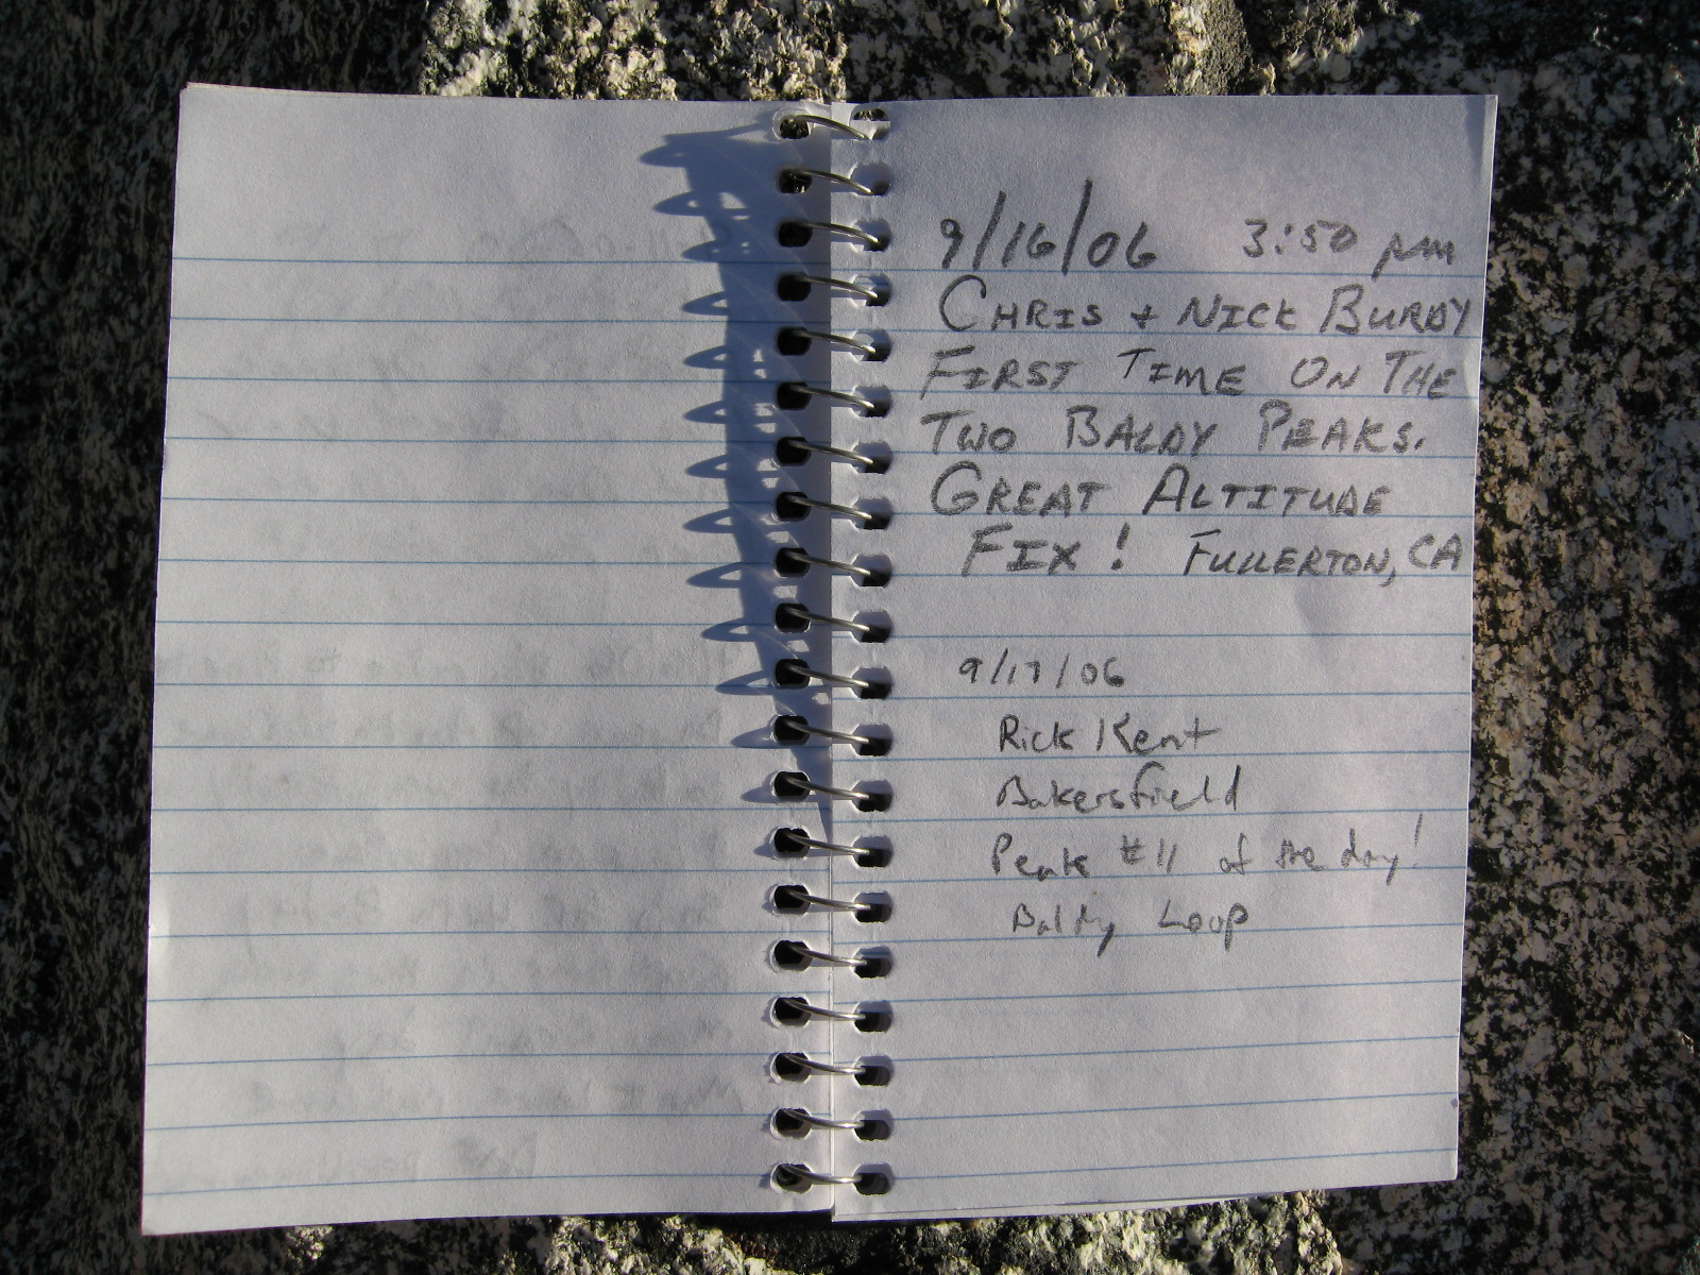 9/16/06 3:50 pm
CHRIS + NICK BURBY
FIRST TIME ON THE
TWO BALDY PEAKS.
GREAT ALTITUDE
FIX! FULLERTON, CA
9/17/06
Rick Kent
Bakersfield
Peak #11 of the day!
Baldy Loop